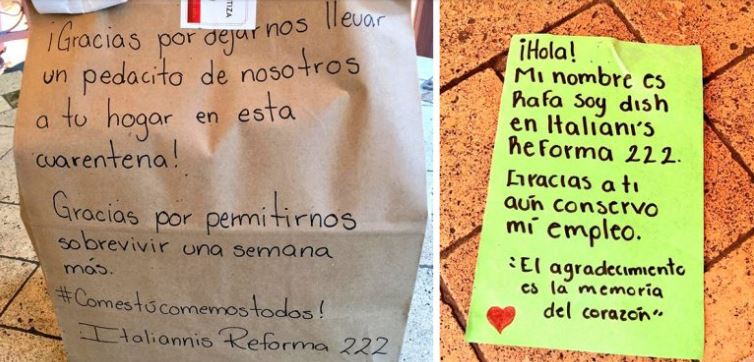 TIZA
¡Gracias por dejarnos llevar
un pedacito de nosotros
a tu hogar en esta
cuarentena!
Gracias por permitirnos
sobrevivir una semana
más.
#Comestúcomemostodos!
Italiannis Reforma 222
¡Hola!
Mi nombre es
Rafa soy dish
en Italiani's
Reforma 222.
Gracias a ti
aún conservo
mi empleo.
"El agradecimiento
es la memoria
del corazón"